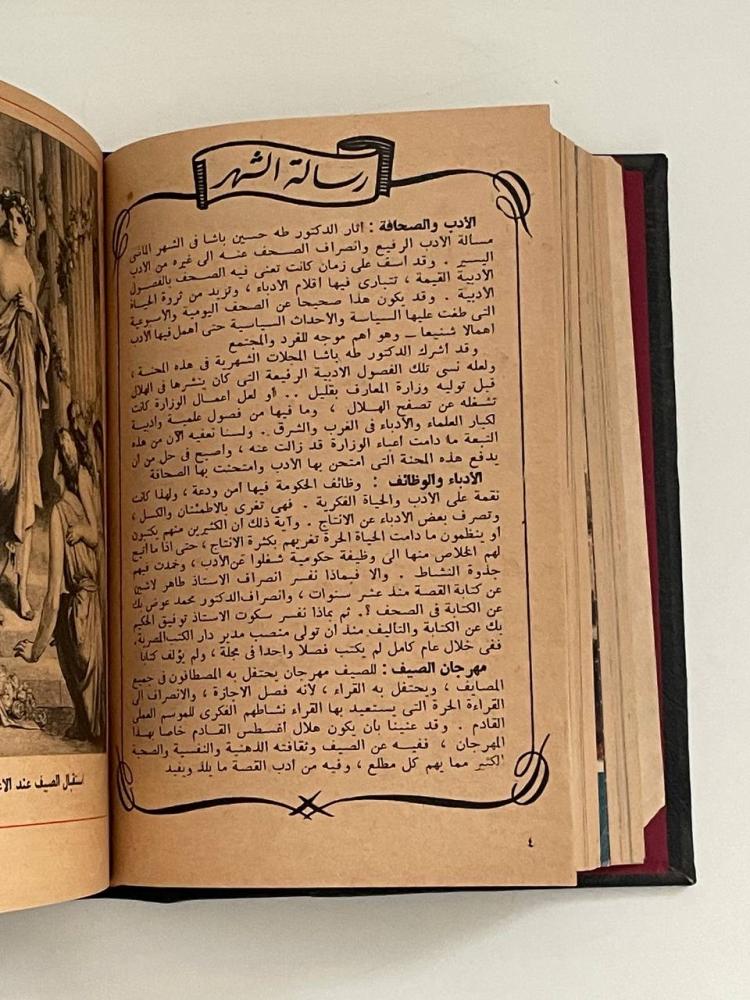 رسالة الشهر
الأدب والصحافة : أثار الدكتور طه حسين باشا فى الشهر الماضى
مسألة الأدب الرفيع وانصراف الصحف عنه الى غيره من الأدب
اليسير . وقد أسف على زمان كانت تعنى فيه الصحف بالفصول
الأدبية القيمة ، تتبارى فيها أقلام الأدباء ، وتزيد من ثروة الحياة
الأدبية . وقد يكون هذا صحيحا عن الصحف اليومية والأسبوعية
التى طغت عليها السياسة والأحداث السياسية حتى أهمل فيها الأدب
اهمالا شنيعا - وهو أهم موجه للفرد والمجتمع
وقد أشرك الدكتور طه باشا المجلات الشهرية فى هذه المحنة ،
ولعله نسى تلك الفصول الأدبية الرفيعة التى كان ينشرها فى الهلال
قبل توليه وزارة المعارف بقليل . . أو لعل أعمال الوزارة كانت
تشغله عن تصفح الهلال ، وما فيها من فصول علمية وأدبية
لكبار العلماء والأدباء فى الغرب والشرق . . ولسنا نعفيه الآن من هذه
التبعة ما دامت أعباء الوزارة قد زالت عنه ، وأصبح فى حل من أن
يدفع هذه المحنة التى امتحن بها الأدب وامتحنت بها الصحافة
الأدباء والوظائف : وظائف الحكومة فيها أمن ودعة ، ولهذا كانت
نقمة على الأدب والحياة الفكرية . فهى تغرى بالاطمئنان والكسل ،
وتصرف بعض الأدباء عن الانتاج . وآية ذلك أن الكثيرين منهم يكتبون
أو ينظمون ما دامت الحياة الحرة تغريهم بكثرة الانتاج ، حتى اذا ما أتيح
لهم الخلاص منها الى وظيفة حكومية شغلوا عن الأدب ، وخمدت فيهم
جذوة النشاط . والا فبماذا نفسر انصراف الاستاذ طاهر لاشين
عن كتابة القصة منذ عشر سنوات ، وانصراف الدكتور محمد عوض بك
عن الكتابة فى الصحف ؟. ثم بماذا نفسر سكوت الاستاذ توفيق الحكيم
بك عن الكتابة والتأليف منذ أن تولى منصب مدير دار الكتب المصرية.
ففى خلال عام كامل لم يكتب فصلا واحدا فى مجلة ، ولم يؤلف كتابا
مهرجان الصيف : للصيف مهرجان يحتفل به المصطافون فى جميع
المصايف ، ويحتفل به القراء ، لأنه فصل الاجازة ، والانصراف الى
القراءة الحرة التى يستعيد بها القراء نشاطهم الفكرى للموسم العملى
القادم . وقد عنينا بأن يكون هلال أغسطس القادم خاصا بهذا
المهرجان ، ففيه عن الصيف وثقافته الذهنية والنفسية والصحية
الكثير مما يهم كل مطلع ، وفيه من أدب القصة ما يلذ ويفيد
٤
استقبال الصيف عند